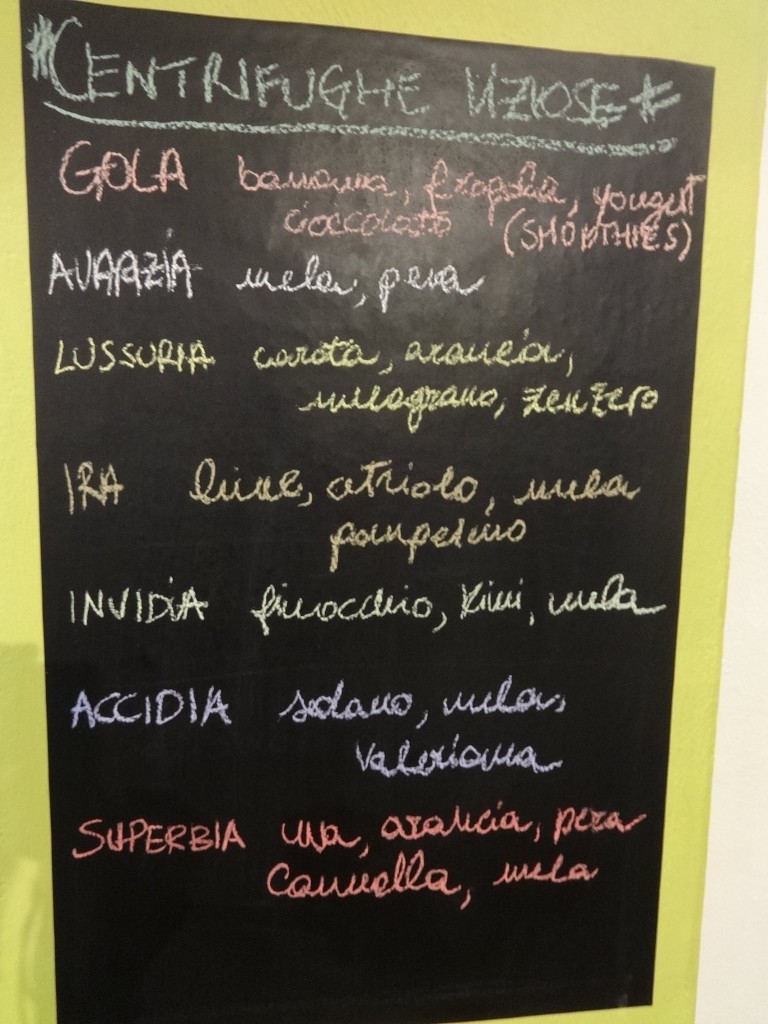 #CENTRIFUGHE VIZIOSE#
GOLA banana, fragola, yougurt
cioccolato (SMOOTHIES)
AVARIZIA mela, pera
LUSSURIA carota, arancia,
melograno, zenzero
IRA lime, cetriolo, mela
pompelmo
INVIDIA finocchio, kiwi, mela
ACCIDIA sedano, mela,
Valeriana
SUPERBIA uva, arancia, pera
Cannella, mela